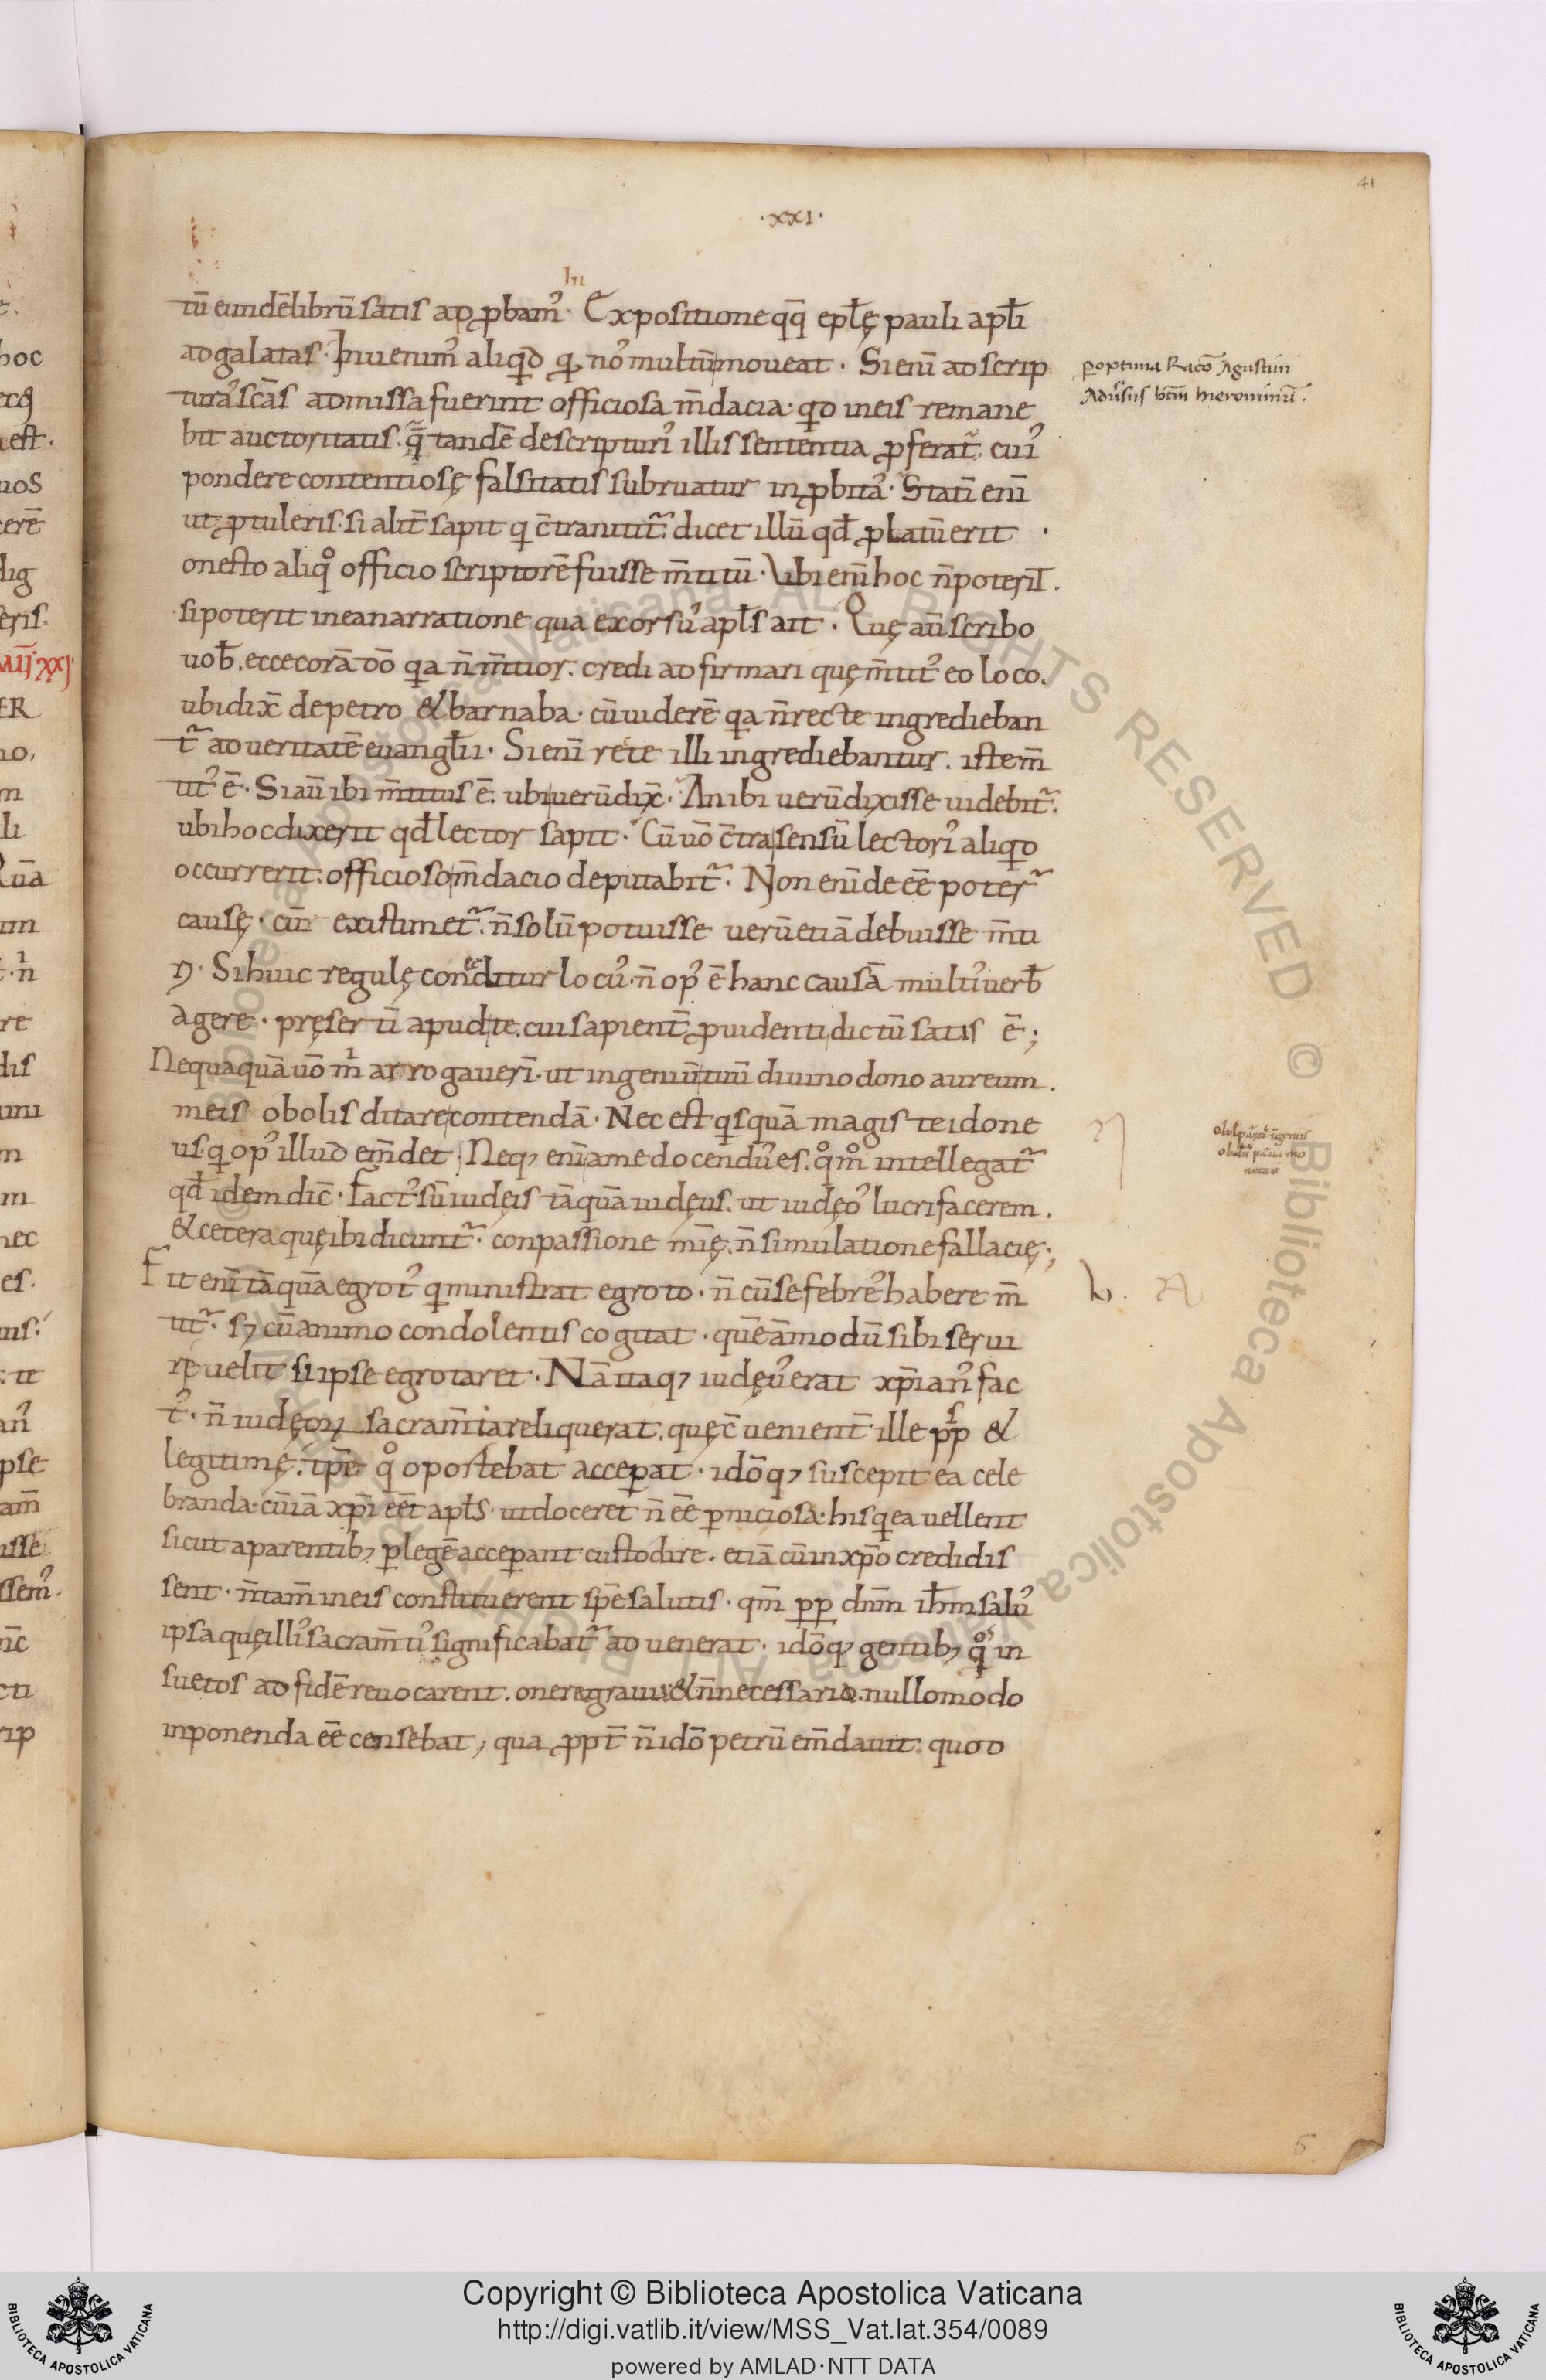 41
·xxı·
In
tū eundē librū satis adꝓbamꝰ· Expositione qq̄ epłę pauli apłi
ad galatas· Inuenimꝰ aliqđ qđ noꝰ multū moueat· Si enī ad scrip
turaꝰ scās admissa fuerint officiosa m̄dacia· qđ in eis remane
bit auctoritatis· q̄ tandē de scripturiꝰ illis sententia ꝓferat᷑· cuiꝰ
pondere contentiosę falsitatis subruatur inꝓbitaꝰ· Statī enī
ut ꝓtuleris· si alit̄ sapit q c̄tra nitit᷑· dicet illū qđ ꝓlatū erit ·
onesto aliqͦ officio scriptorē fuisse m̄titū· Ubi enī hoc n̄ poterit̄.
si poterit in ea narratione qua exorsuꝰ apłs ait· Quę aū scribo
uob̄. ecce corā dō qa n̄ m̄tior. credi adfirmari quę m̄titꝰ eo loco.
ubi dix̄ de petro & barnaba· cū uiderē qa n̄ recte ingredieban
t᷑ ad ueritatē euangłii· Si enī recte illi ingrediebantur. iste m̄
titꝰ ē· Si aū ibi m̄titus ē. ubi uerū dix̄· An ibi uerū dixisse uidebit᷑.
ubi hoc dixerit qđ lector sapit· Cū uō c̄tra sensū lectoriꝰ aliqđ
occurrerit. officioso m̄dacio deputabit᷑· Non enī deeē poter᷑
causę· cur existimet᷑· n̄ solū potuisse uerū etiā debuisse m̄ti
ꝶ· Si huic regulę conceditur locuꝰ· n̄ opꝰ ē hanc causā multiꝰ uerb̄
agere· pręsertī apud te. cui sapient̄ ꝓuidenti dictū satis ē;
Nequaquā uō m̄ı arrogauerī· ut ingeniū tuū diuino dono aureum.
meis obolis ditare contendā· Nec est qsquā magis te idone
us· q opꝰ illud em̄det· Neqꝫ enī a me docenduꝰ es. qͦmͦ intellegat᷑
qđ idem dic̄· Factꝰ sū iudęis tāquā iudęus. ut iudęoꝰ lucrifacerem.
& cetera quę ibi dicunt᷑· conpassione mīę. n̄ simulatione fallacię;
Fit enī tāquā egrotꝰ q ministrat egroto· n̄ cū se febreꝰ habere m̄
tit᷑· sꝫ cū animo condolentis cogitat· quēāmodū sibi serui
rī uelit si ipse egrotaret· Nā itaqꝫ iudęuꝰ erat xp̄ianꝰ fac
tꝰ· n̄ iudęoꝶ sacram̄ta reliquerat. quę c̄uenient̄ ille pp̄ls &
legitimę. tp̄e qͦ oportebat acceperat· idōqꝫ suscepit ea cele
branda· cū iā xp̄i eēt apłs· ut doceret n̄ eē ꝑniciosa· his q ea uellent
sicut a parentibꝫ ꝑ legē acceperant custodire. etiā cū in xp̄o credidis
sent· n̄ tam̄ in eis constituerent spē salutis· qm̄ pp dn̄m ih̄m saluꝰ
ipsa quę illiꝰ sacram̄tiꝰ significabat᷑ aduenerat· idōqꝫ gentibꝫ qͦs in
suetos ad fidē reuocarent. onere graui & n̄ necessario. nullo modo
inponenda eē censebat; qua ꝓpt̄ n̄ idō petrū em̄dauit. quod
ꝑ optima Racō Agustini
Adūsus bt̄m hieronimū·
b.
6
Copyright © Biblioteca Apostolica Vaticana
http://digi.vatlib.it/view/MSS_Vat.lat.354/0089
powered by AMLAD·NTT DATA
BIBLIOTECA APOSTOLICA VATICANA
BIBLIOTECA APOSTOLICA VATICANA